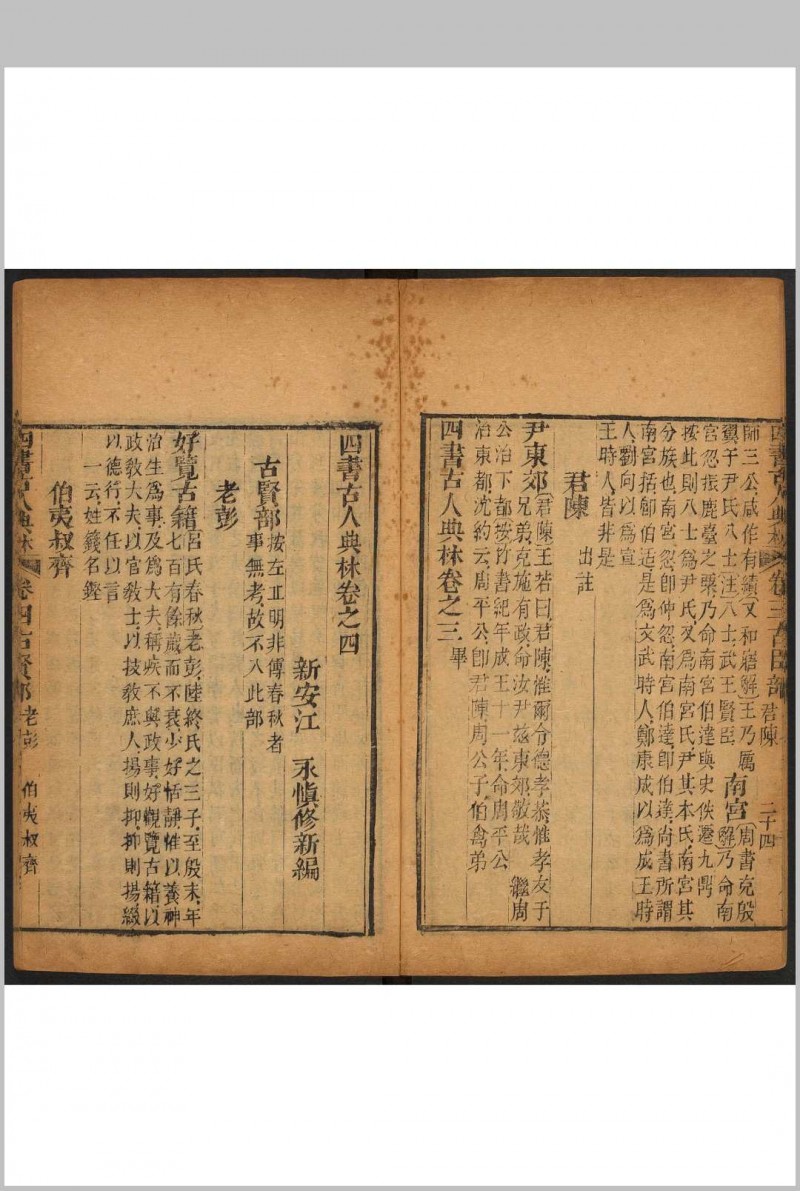 師三公咸作有績又和寤解王乃厲
翼于尹氏八士注八士武王賢臣
南宮
周書克殷
解乃命南
宮忽振鹿臺之粟乃命南宮伯達與史佚遷九鼎
按此則八士爲尹氏又爲南宮氏尹其本氏南宮其
分族也南宮忽卽仲忽南宮伯達卽伯達尚書所謂
南宮括卽伯适是爲文武時人鄭康成以爲成王時
人劉向以爲宣
王時人皆非是
君陳 出註
尹東郊
君陳王若曰君陳惟爾令德孝恭惟孝友于
兄弟克施有政命汝尹茲東郊敬哉
繼周
公治下都按竹書紀年成王十一年命周平公
治東都沈約云周平公卽君陳周公子伯禽弟
四書古人典林卷之三 畢
四書古人典林 卷三古臣部 君陳 二十四
四書古人典林卷之四
新安江 永慎修新編
古賢部
按左丘明非傳春秋者
事無考故不入此部
老彭
好覽古籍
呂氏春秋老彭陸終氏之三子至殷末年
七百有餘歲而不衰少好恬靜惟以養神
治生爲事及爲大夫稱疾不與政事好觀覽古籍以
政敎大夫以官敎士以技敎庶人揚則抑抑則揚綴
以德行不任以言
一云姓籛名鏗
伯夷叔齊
四書古人典林 卷四古賢部 老彭 伯夷叔齊